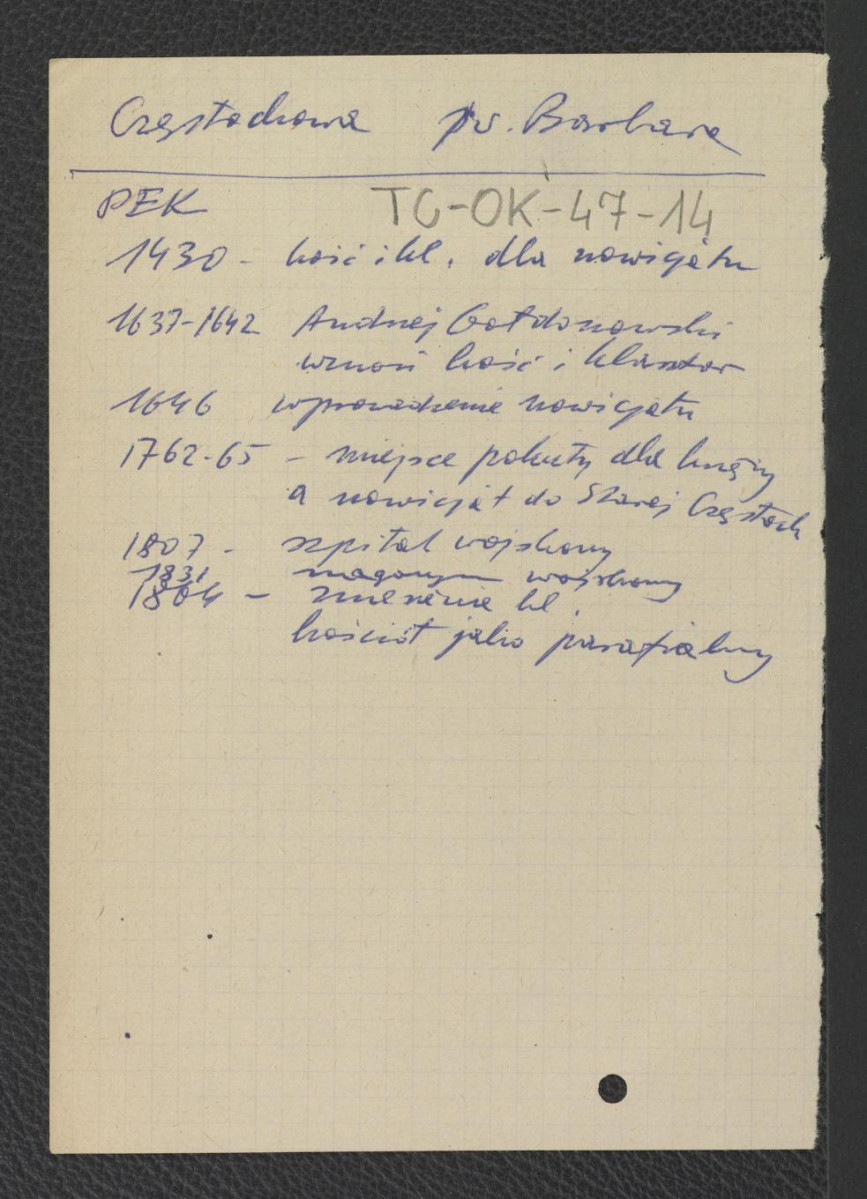 Częstochowa pw. Barbara
PEK TC-OK-47-14
1430 - kość i kl. dla nowicjatu
1637-1642 Andrzej Gołdonowski
wznosi kość i klasztor
1646 wprowadzenie nowicjatu
1762-65 - miejsce pokuty dla księży
a nowicjat do Starej Częstoch
1807 - szpital wojskowy
1831 magazyn wojskowy
1864 - zniesienie kl.
kościół jako parafialny